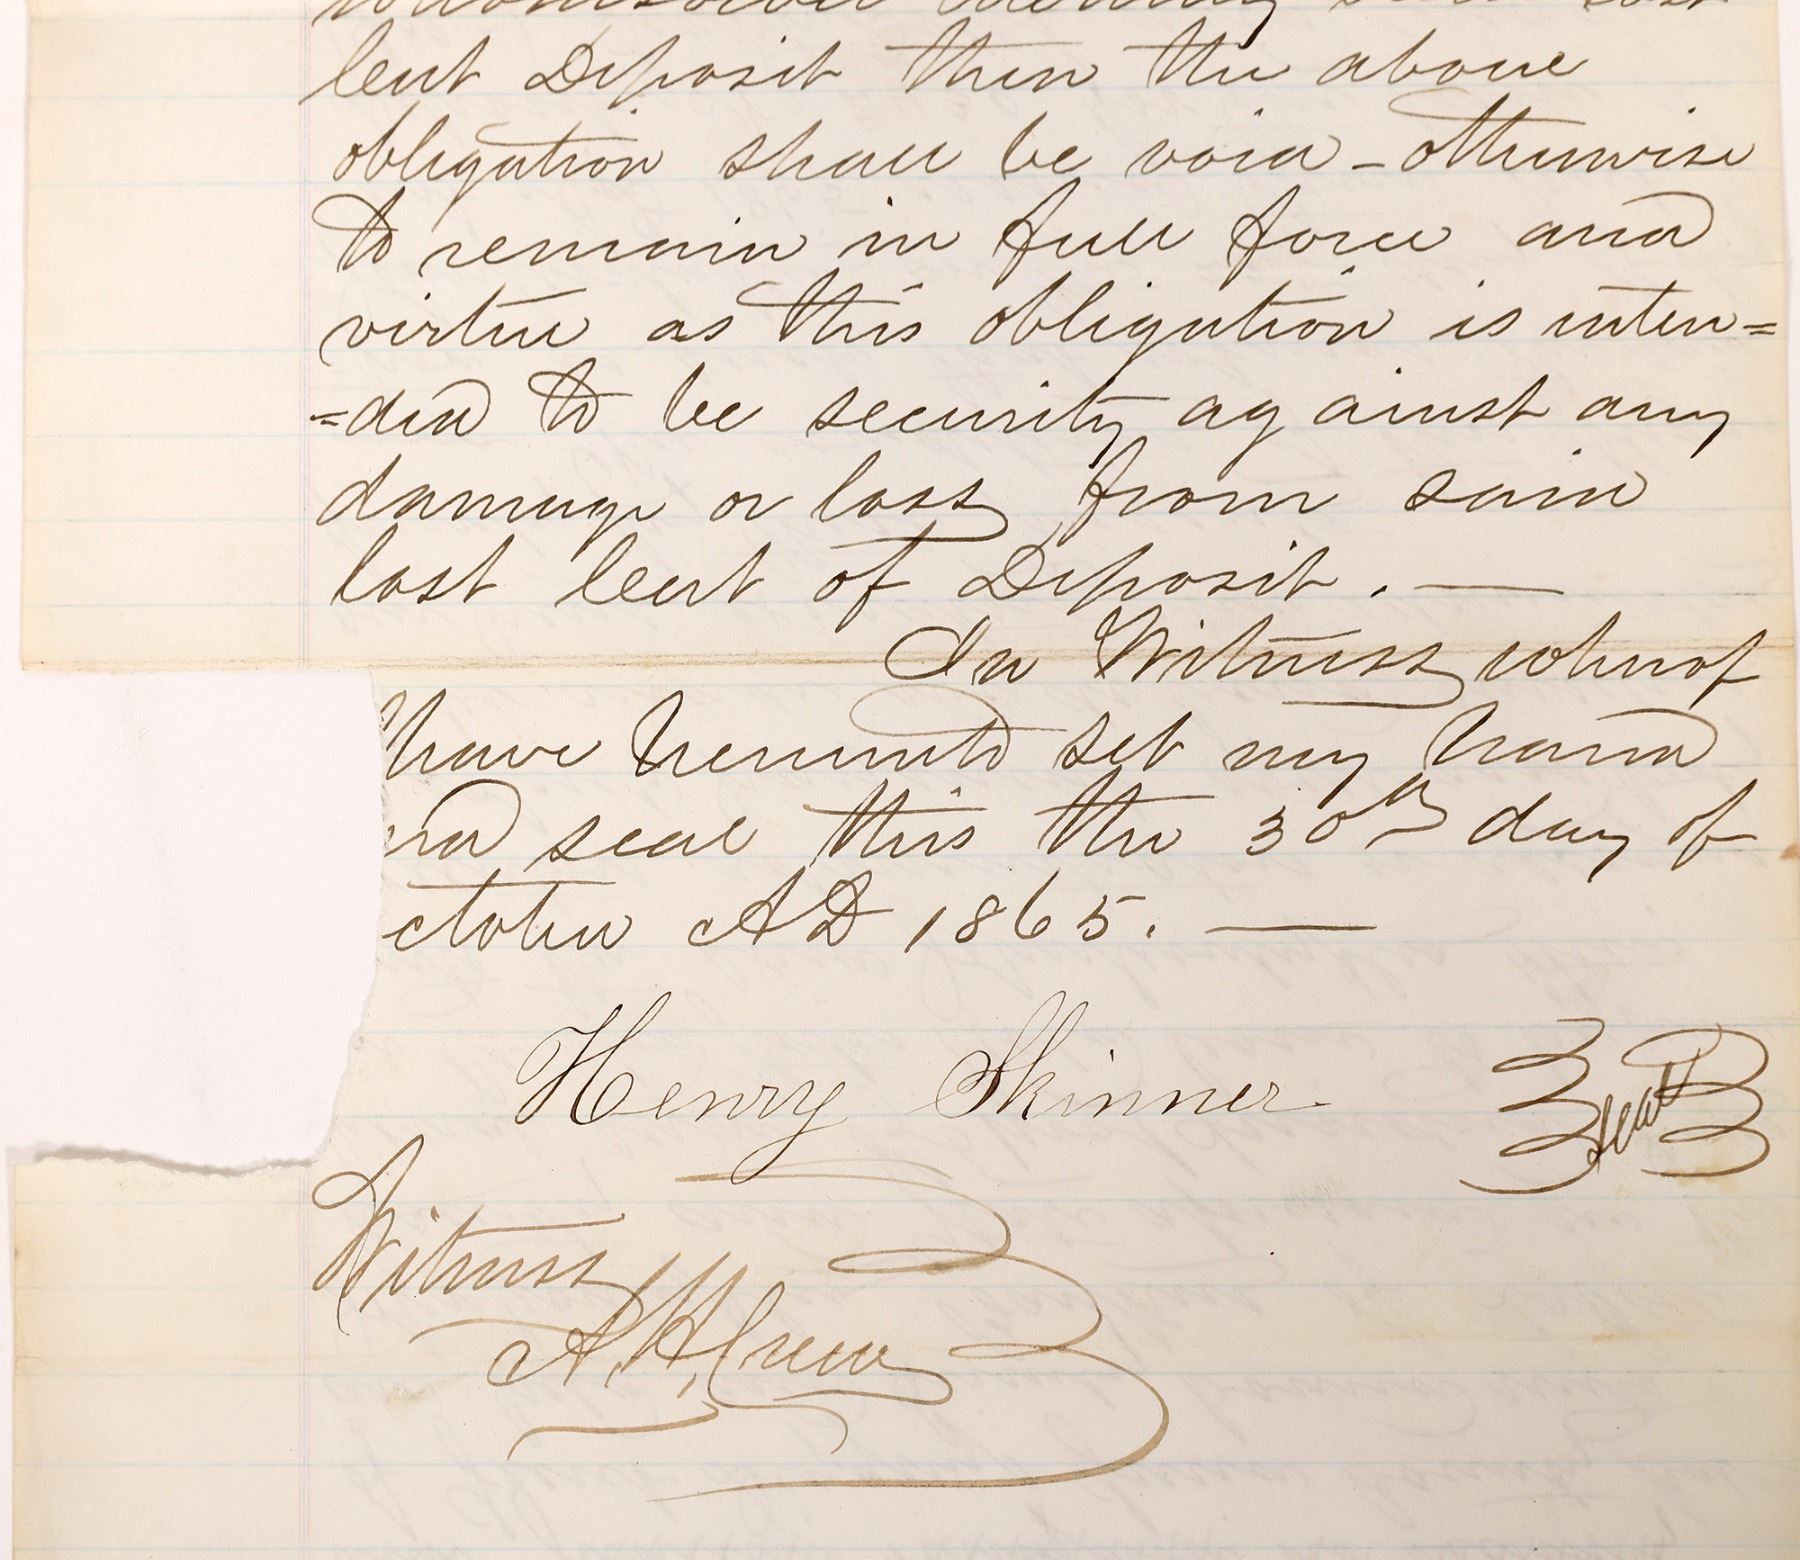 whomsoever
lent Deposit then the above
obligation shall be void - otherwise
to remain in full force and
virtue as this obligation is inten=
=ded to be security against any
damage or loss from said
lost Cert of Deposit. —
In Witness whereof
have hereunto set my hand
nd seal this the 30th day of
ctober AD 1865. —
Henry Skinner Seal
Witness
A. H.